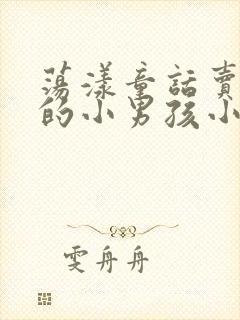 荡漾童話賣
的小男孩小
雯舟舟